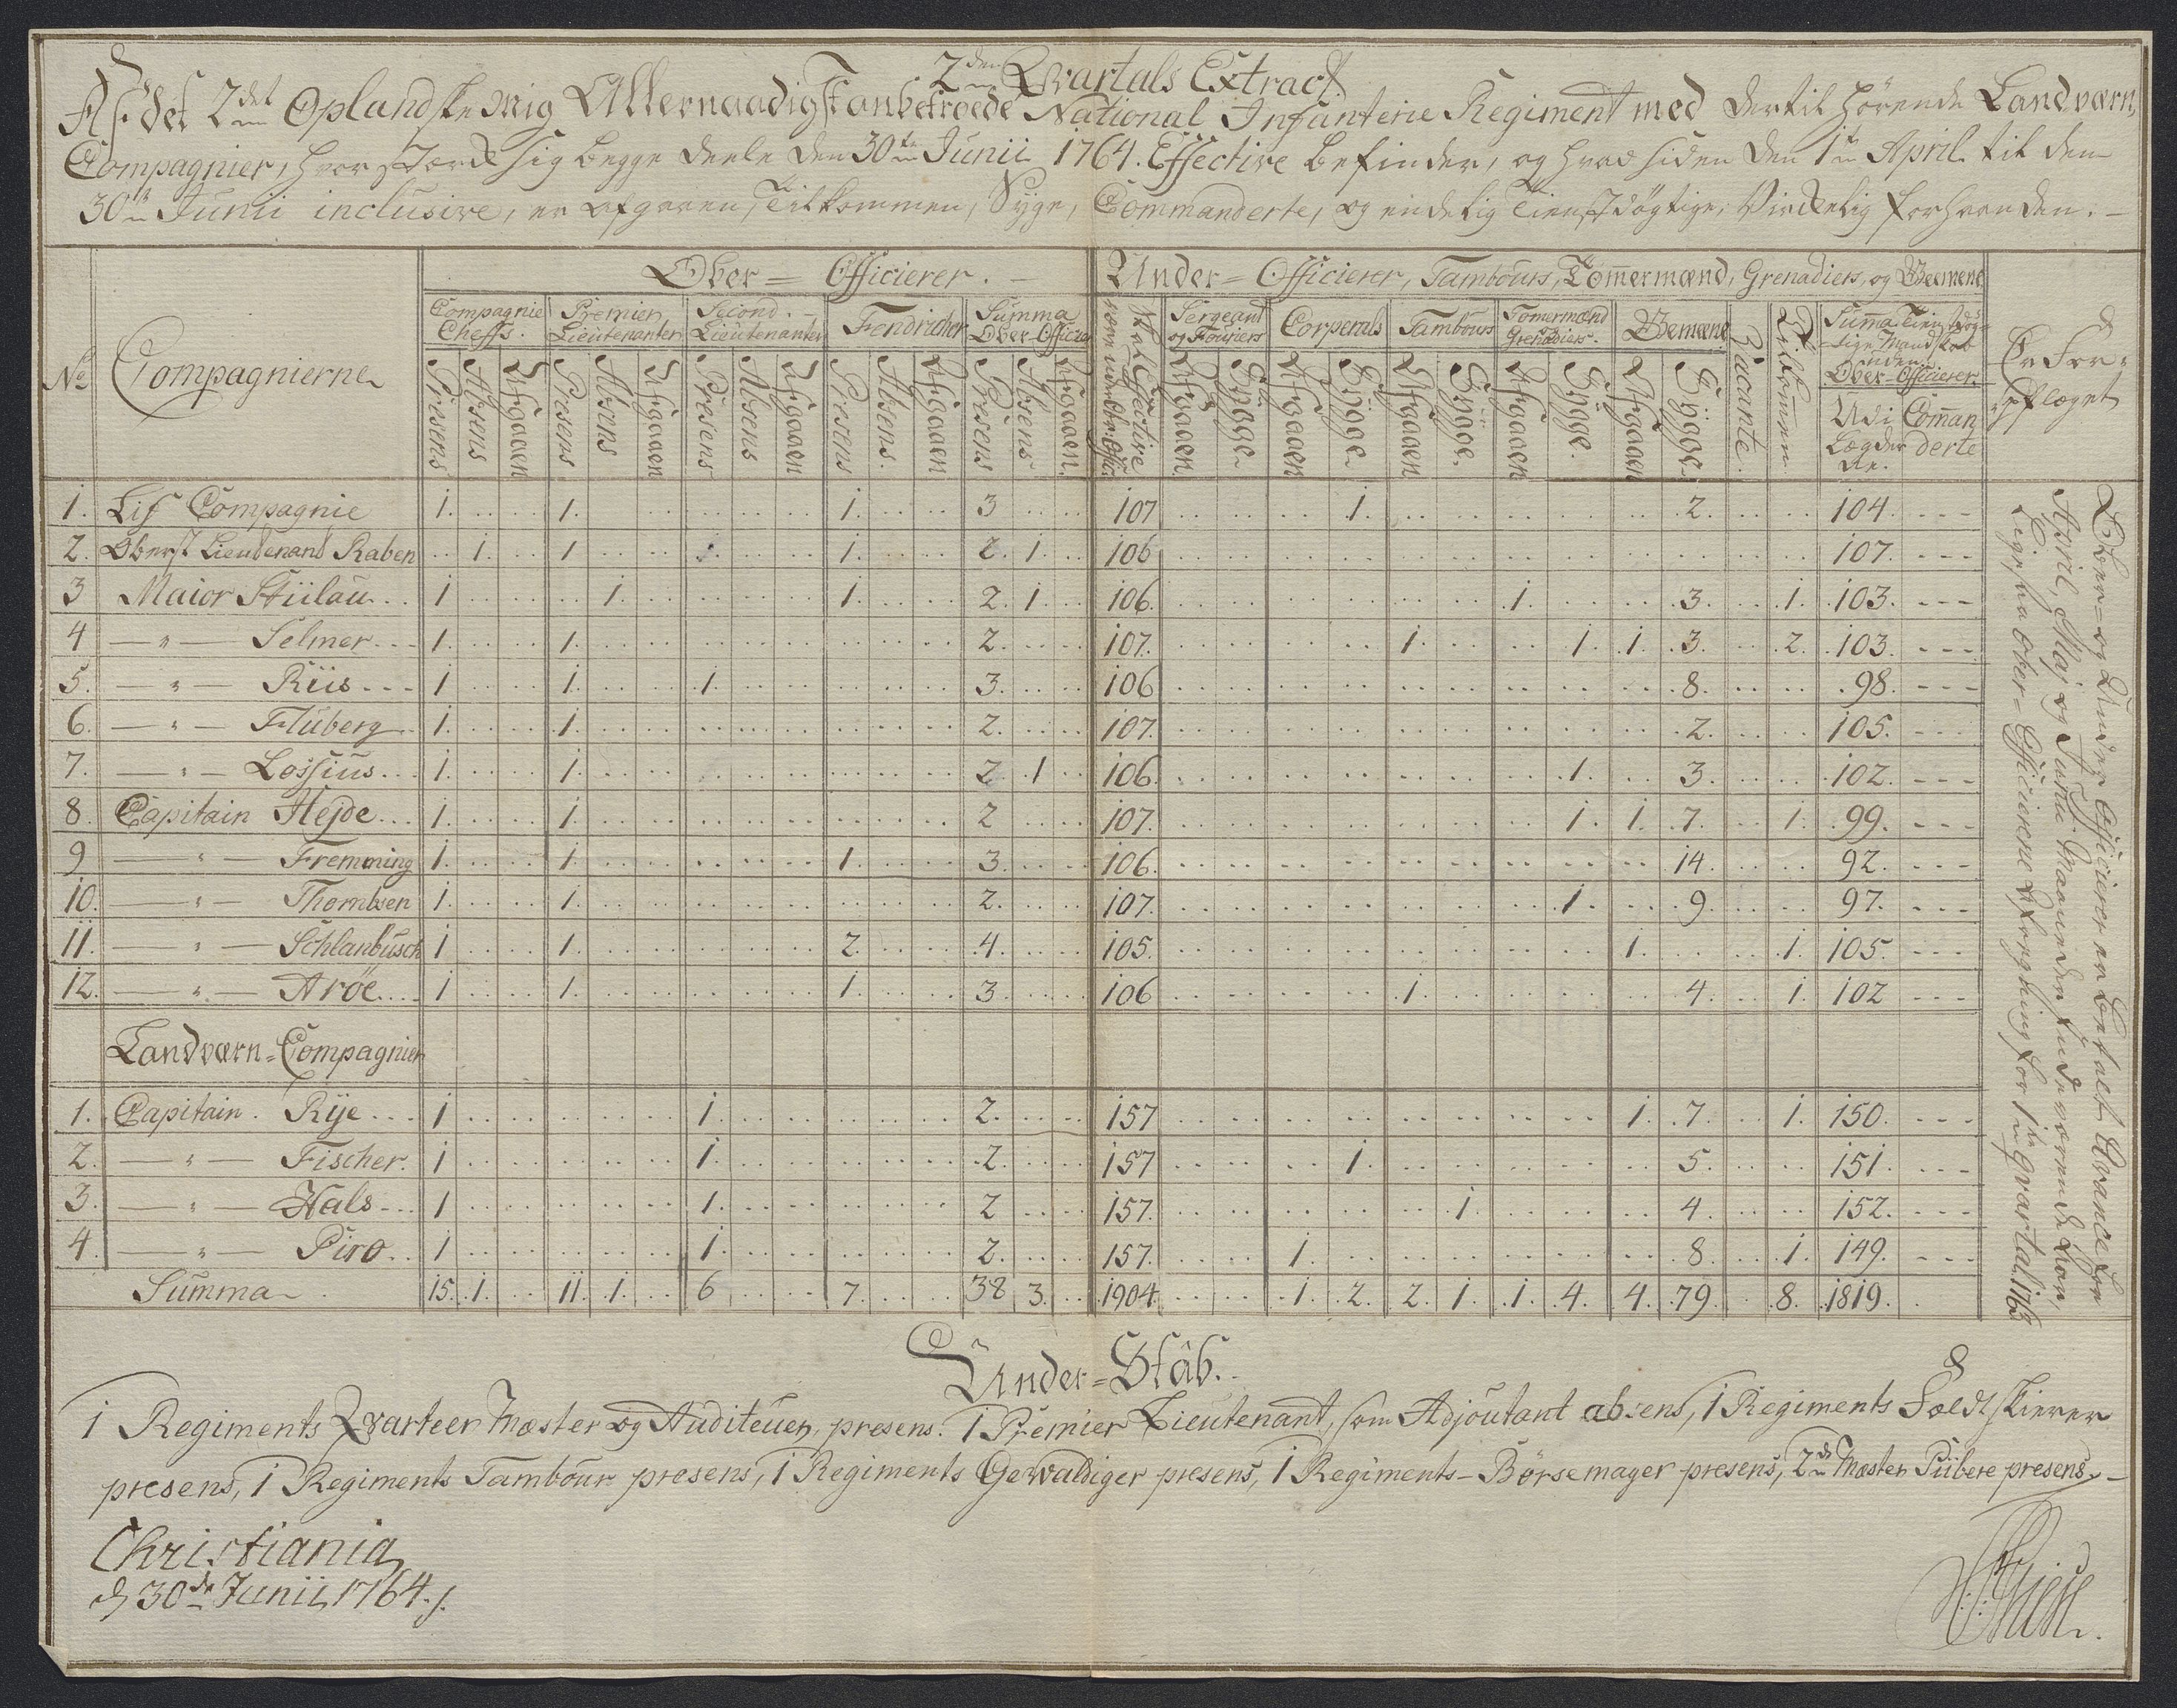 2den Qvartals Extract
Af det 2det Oplandske Mig Allernaadigst anbetroede National Infanterie Regiment med dertil hörende Landværn
Compagnier, hvor stærck sig begge deele den 30te Junii 1764. Effective befinder, og hvad siden den 1te April til den
30te Junii inclusive, er afgaaen, Tilkommen, Syge, Commanderte, og endelig Tienstdögtige, Virckelig forhaanden.
Ober=Officierer. Under=Officierer, Tambours, Tömermænd, Grenadiers, og Gemene
No Compagnierne Compagnie Cheffs. Premier Lieutenanter Second. Lieutenanter Fendricher Summa Ober-Officie Skal Effective være under Offic: Sergeant og Fouriers Corperals Tambours Tömermænd Grenadiers. Gemene Vacante. Tilkommen. Summa Tienstdög- tige Mandskab uden Ober-Officierer. Er For- pflæget
Presens Absens Afgaaen Presens Absens Afgaaen Presens Absens Afgaaen Presens Absens. Afgaaen Presens Absens. Afgaaen. Afgaaen. Sygge. Afgaaen Sygge. Afgaaen Sygge. Afgaaen Sygge. Afgaaen Sygge. Udi Lægder ne. Coman derte
1. Lif Compagnie 1. 1. 1. 3 107 1. 2. 104.
2. Oberst Lieutenand Raben 1. 1 1. 2. 1. 106 107.
3 Maior Stülau 1 1. 1. 2. 1. 106. 1. 3. 1. 103.
4 — " — Selmer 1. 1. 2. 107. 1. 1. 1. 3. 2. 103.
5. — " — Riis 1 1. 1. 3. 106 8. 98.
6. — " — Fluberg 1. 1. 2. 107. 2. 105.
7. — " — Lossius 1. 1. 2. 1 106. 1. 3. 102.
8. Capitain Hejde 1. 1. 2 107. 1. 1. 7. 1. 99.
9 — " — Fremming 1. 1. 1. 3. 106. 14. 92.
10. — " — Thombsen 1. 1. 2. 107. 1. 9 97.
11. — " — Schlanbusch 1 1. 2. 4. 105. 1. 1. 105.
12. — " — Aröe 1 1. 1. 3. 106 1. 4. 1. 102
Landværn=Compagnier
1. Capitain. Rÿe 1 1. 2. 157 1. 7. 1. 150.
2. — " — Fischer. 1 1. 2. 157 1. 5. 151.
3. — " — Hals 1 1. 2 157. 1. 4. 152.
4. — " — Piro 1 1. 2. 157. 1. 8. 1. 149.
Summa 15. 1. 11. 1. 6 7. 38 3. 1904. 1. 2. 2. 1. 1. 4. 4. 79. 8. 1819.
Ober= og Under Officierer er betalt Gvance for
April, Maj og Junii Maaneder
lige saa Ober=Officierene for 1te Qvartal 1763
Under=Stab.
1 Regiments Qvarteer Mæster og Auditeuer, presens. 1 Premier Lieutenant, som Adjoutant absens, 1 Regiments Feldtskierer
presens, 1 Regiments Tambour presens, 1 Regiments Gewaldiger presens, 1 Regiments-Börsemager presens, 2de Mæster Piibere presens,
Christiania
d 30de Junii 1764.